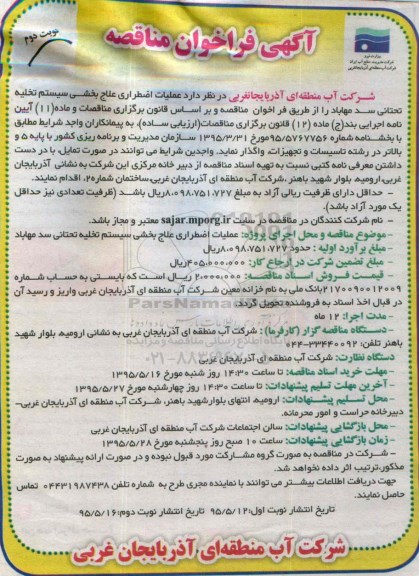 نوبت دوم
آگهی فراخوان مناقصه
شرکت آب منطقه‌ای آذربایجانغربی در نظر دارد عملیات اضطراری علاج بخشی سیستم تخلیه
تحتانی سد مهاباد را از طریق فراخوان مناقصه و بر اساس قانون برگزاری مناقصات و ماده(۱۱) آیین
نامه اجرایی بند(ج) ماده (۱۲) قانون برگزاری مناقصات(ارزیابی ساده)، به پیمانکاران واجد شرایط مطابق
با بخشنامه شماره ۹۵/۵۷۶۷۷۵۶مورخ ۱۳۹۵/۳/۳۱ سازمان مدیریت و برنامه ریزی کشور با پایه ۵ و
بالاتر در رشته تاسیسات و تجهیزات، واگذار نماید. واجدین شرایط می توانند در صورت تمایل، با در دست
داشتن معرفی نامه کتبی نسبت به تهیه اسناد مناقصه از دبیر خانه مرکزی این شرکت به نشانی آذربایجان
غربی،ارومیه، بلوار شهید باهنر، شرکت آب منطقه ای آذربایجان غربی،ساختمان شماره۲، اقدام نمایند.
- حداقل دارای ظرفیت ریالی آزاد به مبلغ ۸،۰۹۸،۷۵۱،۷۲۷ریال باشد (ظرفیت تعدادی نیز حداقل
یک مورد آزاد باشد).
- نام شرکت کنندگان در مناقصه در سایت sajar.mporg.ir معتبر و مجاز باشد.
- موضوع مناقصه و محل اجرای پروژه: عملیات اضطراری علاج بخشی سیستم تخلیه تحتانی سد مهاباد
- مبلغ برآورد اولیه : حدود ۸،۰۹۸،۷۵۱،۷۲۷ریال
- مبلغ تضمین شرکت در ارجاع کار: ۴۰۵،۰۰۰،۰۰۰ریال
- قیمت فروش اسناد مناقصه: ۲،۰۰۰،۰۰۰ ریال است که بایستی به حساب شماره
۲۱۷۰۰۹۰۰۱۲۰۰۹بانک ملی به نام خزانه معین شرکت آب منطقه ای آذربایجان غربی واریز و رسید آن
در قبال اخذ اسناد به فروشنده تحویل گردد.
- مدت اجرا: ۱۲ ماه
- دستگاه مناقصه گزار (کارفرما) : شرکت آب منطقه ای آذربایجان غربی به نشانی ارومیه، بلوار شهید
باهنر تلفن: ۳۳۴۴۰۰۹۲-۰۴۴
دستگاه نظارت: شرکت آب منطقه ای آذربایجان غربی
- مهلت خرید اسناد مناقصه: تا ساعت ۱۴:۳۰ روز شنبه مورخ ۱۳۹۵/۵/۱۶
- آخرین مهلت تسلیم پیشنهادات: تا ساعت ۱۴:۳۰ روز چهارشنبه مورخ ۱۳۹۵/۵/۲۷
- محل تسلیم پیشنهادات: ارومیه، انتهای بلوارشهید باهنر، شرکت آب منطقه ای آذربایجان غربی-
دبیرخانه حراست و امور محرمانه.
- محل بازگشایی پیشنهادات: سالن اجتماعات شرکت آب منطقه ای آذربایجان غربی
- زمان بازگشایی پیشنهادات: ساعت ۱۰ صبح روز پنجشنبه مورخ ۱۳۹۵/۵/۲۸
- شرکت در مناقصه به صورت گروه مشارکت مورد قبول نبوده و در صورت ارائه پیشنهاد به صورت
مذکور،ترتیب اثر داده نخواهد شد.
جهت دریافت اطلاعات بیشتر می توانند با نماینده مجری طرح به شماره تلفن ۰۴۴۳۱۹۸۷۴۳۸ تماس
حاصل نمایند.
تاریخ انتشار نوبت اول:۹۵/۵/۱۲ تاریخ انتشار نوبت دوم:۹۵/۵/۱۶
شرکت آب منطقه‌ای آذربایجان غربی